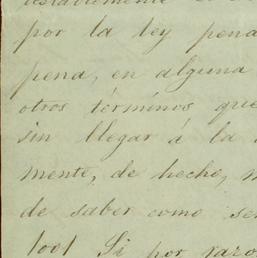 por la ley pena
pena, en alguna
otros términos que
sin llegar á la
mente, de hecho,
de saber como se
Si por razo